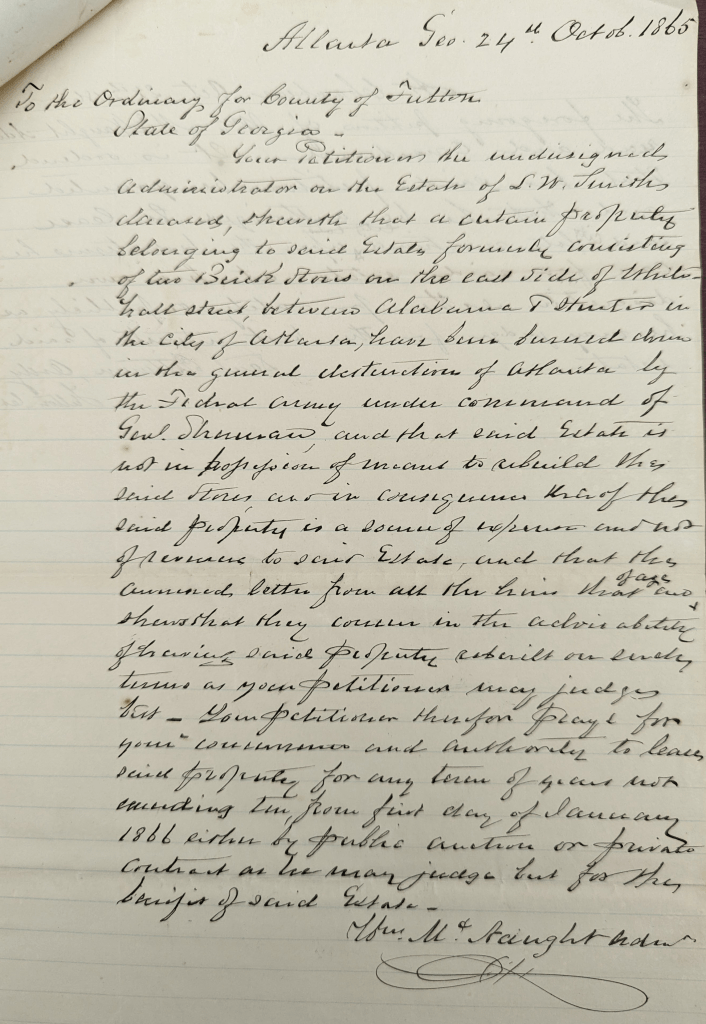 Atlanta Geo. 24th Octob. 1865
To the Ordinary for County of Fulton
State of Georgia -
Your Petitioner the undersigned
Administrator on the Estate of S. W. Smith
deceased, sheweth that a certain property
belonging to said Estate formerly consisting
of two Brick Stores on the east side of White-
hall street, between Alabama & Hunter in
the city of Atlanta, have been burned down
in the general destruction of Atlanta by
the Federal army under command of
Genl. Sherman, and that said Estate is
not in possession of means to rebuild the
said stores, and in consequence thereof the
said property is a source of expense and not
of revenue to said Estate, and that the
annexed letter from all the heirs that are of age
shows that they concur in the advisability
of having said property rebuilt on such
terms as your petitioner may judge
best - Your petitioner therefor prays for
your concurrence and authority to lease
said property for any term of years not
exceeding ten, from first day of January
1866 either by public auction or private
contract as he may judge best for the
benefit of said Estate -
Wm. McNaught Admr